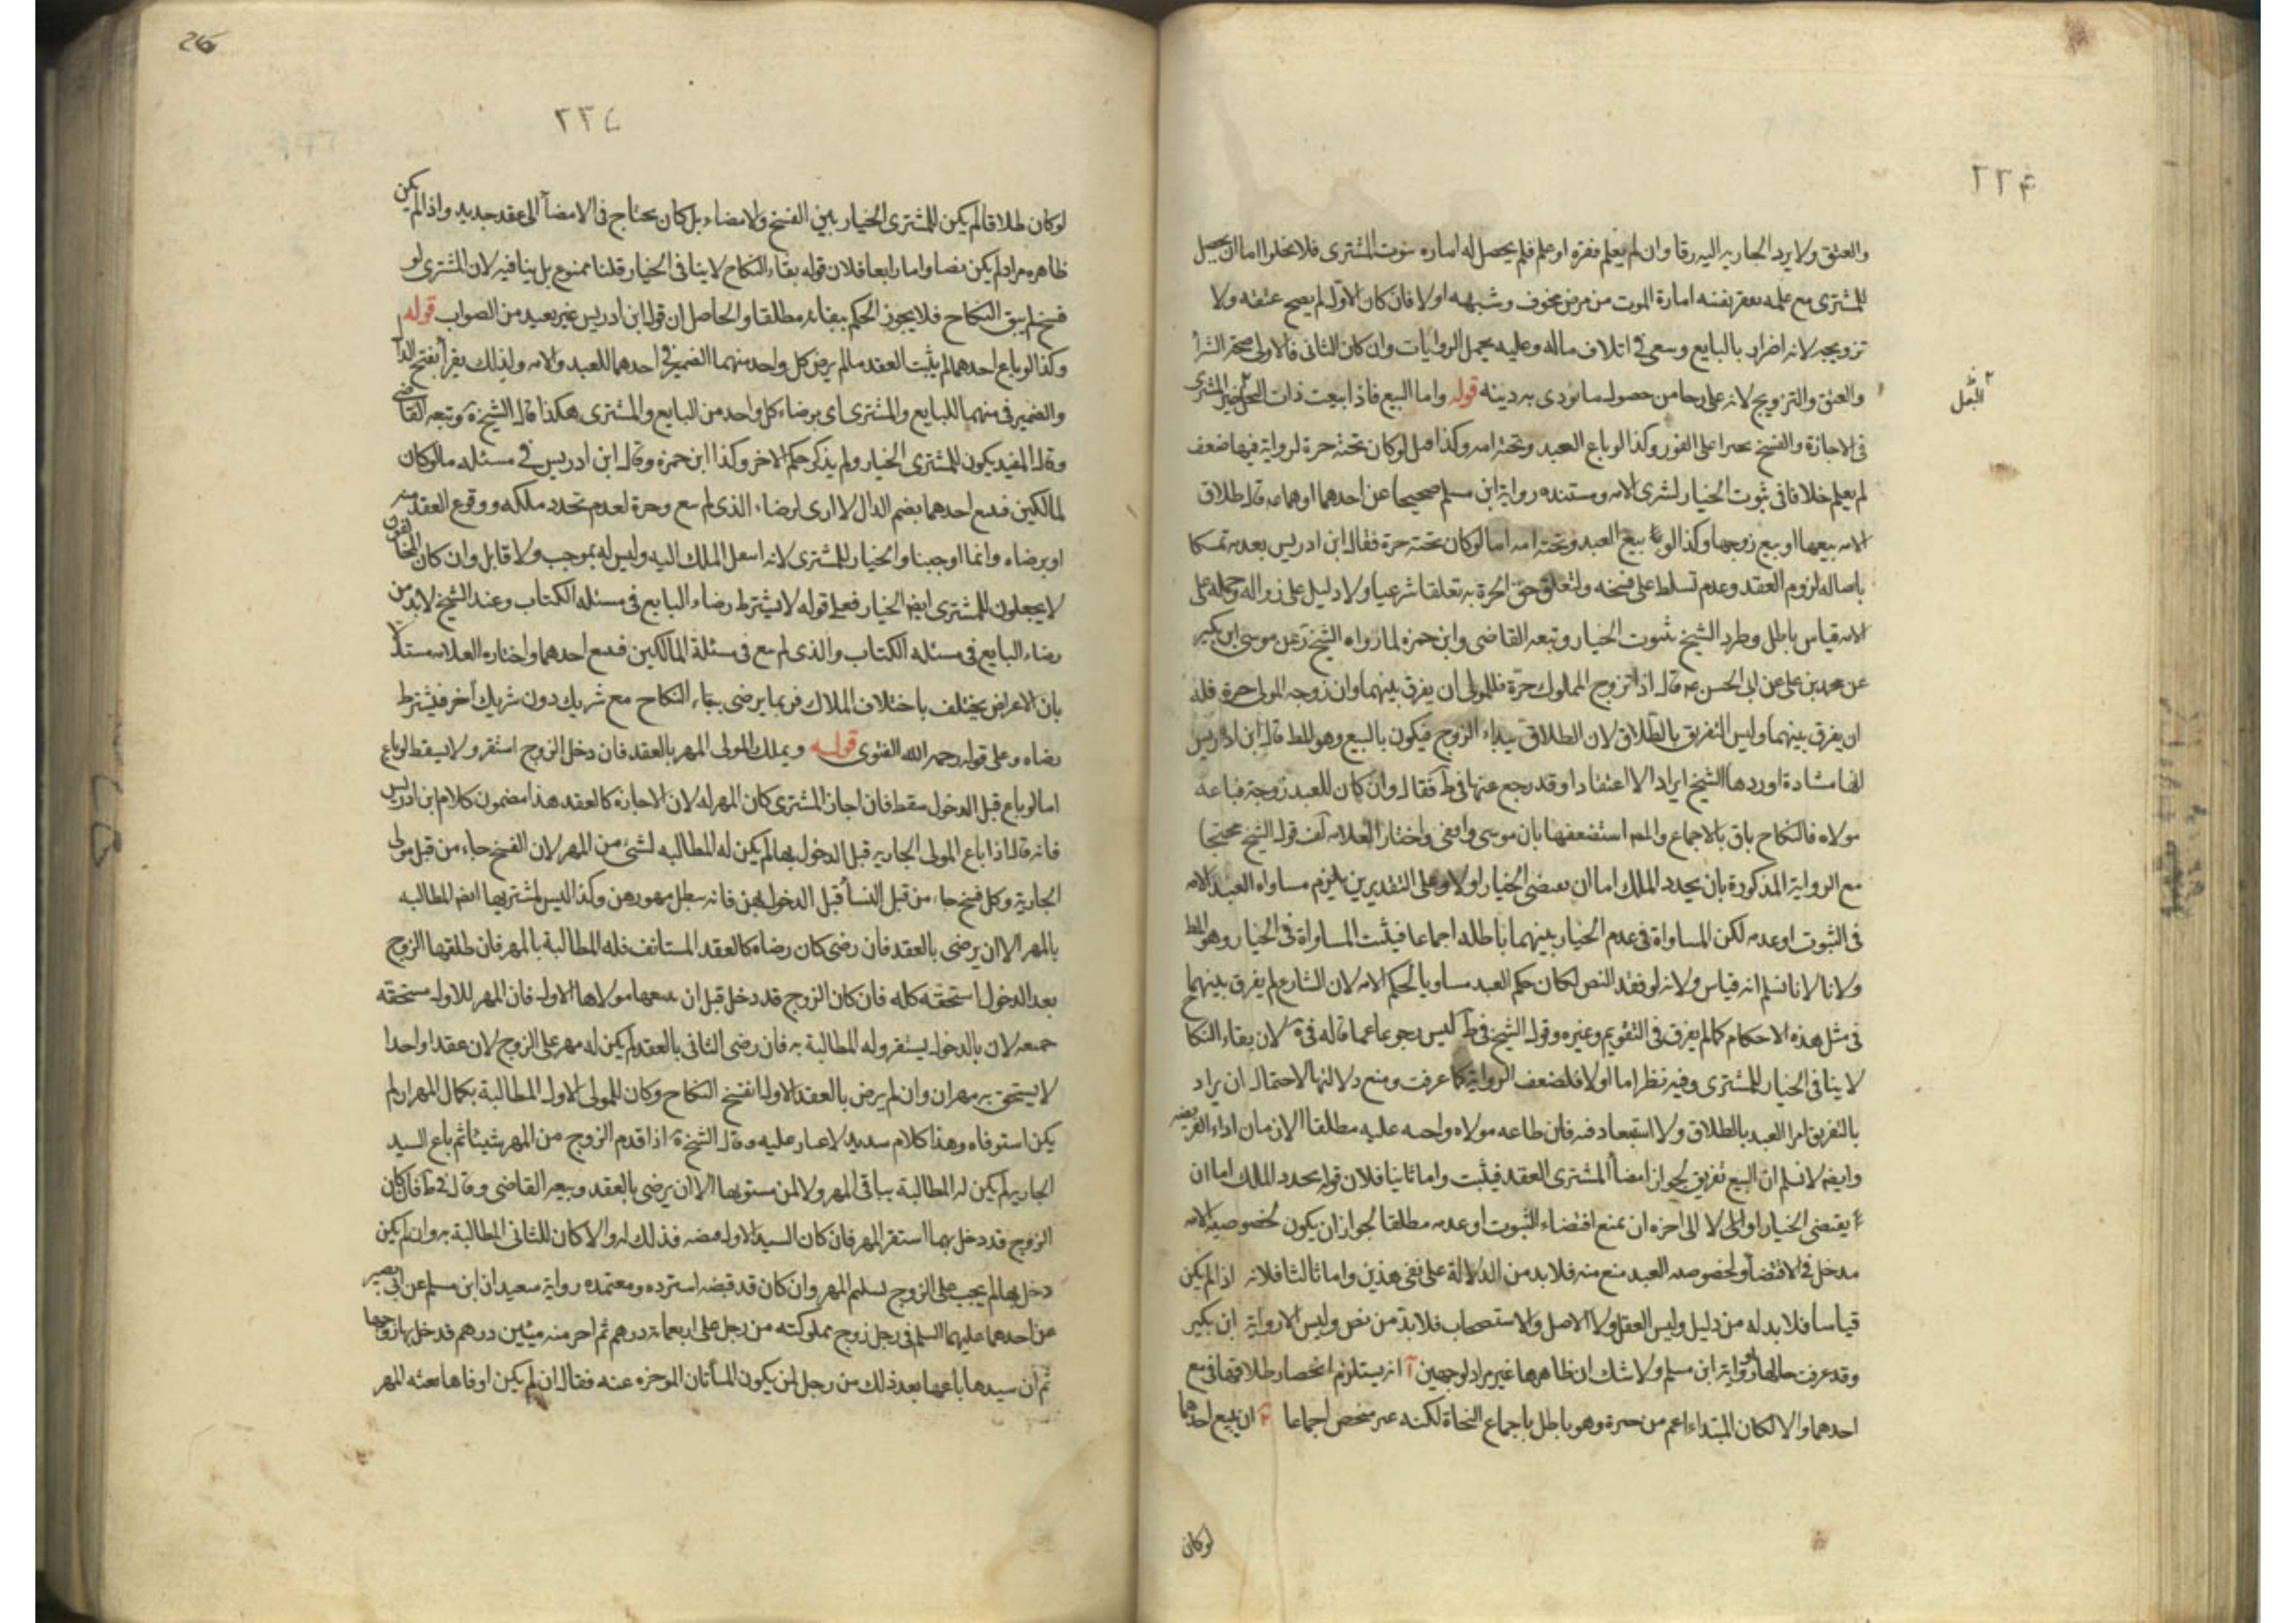 ٢٣۴
والعتق ولا يرد الجارية اليه رقا وان لم يعلم فقره او علم فلم يحصل له امارة بموت المشتري فلا يخلوا اما ان يحصل
للمشتري مع علمه بفقر نفسه امارة الموت من مرض مخوف وشبهه او لا فان كان الاول لم يصح عتقه ولا
تزويجه لانه اضرار بالبايع وسعى في اتلاف ماله وعليه يحمل الروايات وان كان الثاني فالاولى صحة الشراء
والعتق والتزويج لانه على رجا من حصول ما يؤدى به دينه قوله واما البيع فاذا بيعت ذات البعل تخير المشتري
البعل
في الاجازة والفسخ تخيرا على الفور وكذا لو باع العبد وتحته امه وكذا قيل لو كان تحته حرة لرواية فيها ضعف
لم يعلم خلافا في ثبوت الخيار لمشتري الامه ومستنده رواية ابن مسلم صحيحا عن احدهما او هما عه قال طلاق
الامه بيعها او بيع زوجها وكذا لو بيع العبد وتحته امه اما لو كان تحته حرة فقال ابن ادريس بعدمه تمسكا
باصاله لزوم العقد وعدم تسلط على فسخه ولتعلق حق الحرة به تعلقا شرعيا ولا دليل على زواله وحمله على
الامه قياس باطل وطرد الشيخ ثبوت الخيار وتبعه القاضي وابن حمزه لما رواه الشيخ ره عن موسى ابن بكير
عن محمد بن علي عن ابي الحسن عه قال اذا تزوج المملوك حرة فللمولى ان يفرق بينهما وان زوجه المولى حرة فله
ان يفرق بينهما وليس التفريق بالطلاق لان الطلاق بيد الزوج فيكون بالبيع وهو المط قال ابن ادريس
انها شاذة اوردها الشيخ ايرادا لا اعتقادا وقد رجع عنها في ط فقال وان كان للعبد زوجة فباعه
مولاه فالنكاح باق بالاجماع والمص استضعفها بان موسى واقفى واختار العلامه في لف قول الشيخ محتجا
مع الرواية المذكورة بان تجدد الملك اما ان يقتضى الخيار او لا وعلى التقديرين يلزم مساواه العبد الامه
في الثبوت او عدمه لكن المساواة في عدم الخيار بينهما باطله اجماعا فيثبت المساواة في الخيار وهو المط
ولانا لا نسلم انه قياس ولانه لو فقد النص لكان حكم العبد مساويا لحكم الامه لان الشارع لم يفرق بينهما
في مثل هذه الاحكام كما لم يفرق في التقويم وغيره وقول الشيخ في ط ليس رجوعا عما قاله في ية لان بقاء النكا
لا ينافي الخيار للمشتري وفيه نظر اما اولا فلضعف الرواية كما عرفت ومنع دلالتها لاحتمال ان يراد
بالتفريق امر العبد بالطلاق ولا استبعاد فيه فان طاعه مولاه واجبه عليه مطلقا الا زمان اداء الفريضه
وايضا لا نسلم ان البيع تفريق لجواز امضاء المشتري العقد فيثبت واما ثانيا فلان قوله تجدد الملك اما ان
يقتضى الخيار او لا الى اخره ان نمنع اقتضاء الثبوت او عدمه مطلقا لجواز ان يكون لخصوصية الامه
مدخل في الاقتضاء ولخصوصيه العبد منع منه فلا بد من الدلالة على نفى هذين واما ثالثا فلانه اذا لم يكن
قياسا فلا بد له من دليل وليس العقل ولا الاصل والاستصحاب فلا بد من نص وليس الا رواية ابن بكير
وقد عرفت حالها ورواية ابن مسلم ولا شك ان ظاهرها غير مراد لوجهين آ انه يستلزم انحصار طلاقها في بيع
احدهما والا لكان المبتداء اعم من خبره وهو باطل باجماع النحاة لكنه غير منحصر اجماعا ب ان بيع احدهما
لو كان
٢٣٥
لو كان طلاقا لم يكن للمشتري الخيار بين الفسخ والامضاء بل كان يحتاج في الامضاء الى عقد جديد واذا لم يكن
ظاهره مراد لم يكن نصا واما رابعا فلان قوله بقاء النكاح لا ينافي الخيار قلنا ممنوع بل ينافيه لان المشتري لو
فسخ لم يبق النكاح فلا يجوز الحكم ببقائه مطلقا والحاصل ان قول ابن ادريس غير بعيد من الصواب قوله
وكذا لو باع احدهما لم يثبت العقد ما لم يرض كل واحد منهما الضمير في احدهما للعبد والامه ولذلك يقرأ بفتح الدا
والضمير في منهما للبايع والمشتري اى برضاء كل واحد من البايع والمشتري هكذا قال الشيخ ره وتبعه القاضي
وقال المفيد يكون للمشتري الخيار ولم يذكر حكم الاخر وكذا ابن حمزه وقال ابن ادريس في مسئله ما لو كان
لمالكين فبيع احدهما بضم الدال لا ارى لرضاء الذى لم يبع وجها لعدم تجدد ملكه ووقوع العقد منه
او برضاه وانما اوجبنا الخيار للمشتري لانه انتقل الملك اليه وليس له بموجب ولا قابل وان كان المخالفون
لا يجعلون للمشتري ايضا الخيار فعلى قوله لا يشترط رضاء البايع في مسئله الكتاب وعند الشيخ لا بد من
رضاء البايع في مسئله الكتاب والذى لم يبع في مسئلة المالكين فبيع احدهما واختاره العلامه مستدلا
بان الاغراض يختلف باختلاف الملاك فربما يرضى ببقاء النكاح مع شريك دون شريك اخر فيشترط
رضاه وعلى قوله رحمه الله الفتوى قوله ويملك المولى المهر بالعقد فان دخل الزوج استقر ولا يسقط لو باع
اما لو باع قبل الدخول سقط فان اجاز المشتري كان المهر له لان الاجازه كالعقد هذا مضمون كلام ابن ادريس
فانه قال اذا باع المولى الجاريه قبل الدخول بها لم يكن له المطالبه لشئ من المهر لان الفسخ جاء من قبل مولى
الجارية وكل فسخ جاء من قبل النساء قبل الدخول بهن فانه يبطل مهورهن وكذا ليس لمشتريها ايضا المطالبه
بالمهر الا ان يرضى بالعقد فان رضى كان رضاه كالعقد المستانف فله المطالبة بالمهر فان طلقها الزوج
بعد الدخول استحقه كله فان كان الزوج قد دخل قبل ان يبيعها مولاها الاول فان المهر للاول مستحقه
جميعه لان بالدخول يستقر وله المطالبة به فان رضى الثاني بالعقد لم يكن له مهر على الزوج لان عقدا واحدا
لا يستحق به مهران وان لم يرض بالعقد الاول انفسخ النكاح وكان للمولى الاول المطالبة بكمال المهر ان لم
يكن استوفاه وهذا كلام سديد لا غبار عليه وقال الشيخ ره اذا قدم الزوج من المهر شيئا ثم باع السيد
الجاريه لم يكن له المطالبة بباقى المهر ولا لمن يشتريها الا ان يرضى بالعقد وتبعه القاضي وقال في ط فان كان
الزوج قد دخل بها استقر المهر فان كان السيد الاول قبضه فذلك له والا كان للثاني المطالبة به وان لم يكن
دخل بها لم يجب على الزوج تسليم المهر وان كان قد قبضه استرده ومعتمده رواية سعيدان ابن مسلم عن ابي بصير
عن احدهما عليهما السلم في رجل زوج مملوكته من رجل على اربعمائة درهم ثم اخر منه مئتين درهم فدخل بها زوجها
ثم ان سيدها باعها بعد ذلك من رجل لمن يكون المأتان الموخره عنه فقال ان لم يكن اوفاها بقية المهر